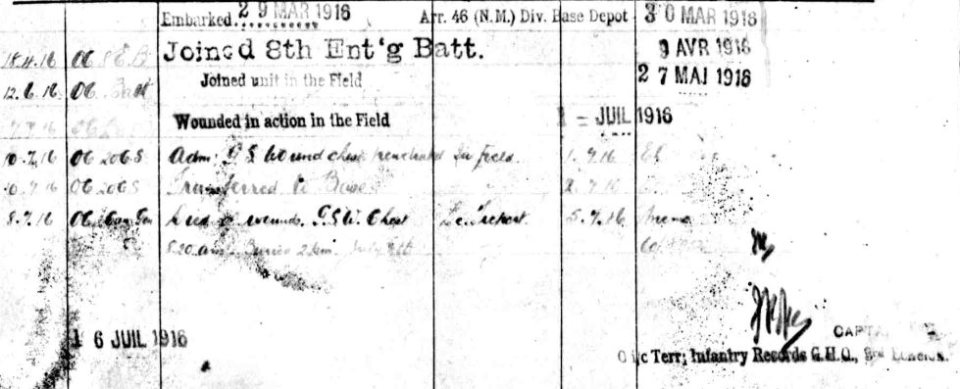 Embarked 29 MAR 1916 Arr. 46 (N.M.) Div. Base Depot 30 MAR 1916
18.4.16 OC 8 E.B. Joined 8th Ent'g Batt. 9 AVR 1916
12.6.16 OC Batt Joined unit in the Field 27 MAI 1916
Wounded in action in the Field 1 - JUIL 1916
10.7.16 OC 20 G S Adm: G S Wound chest penetrated In field. 1.7.16
10.7.16 OC 20 G S Transferred to Base 2.7.16
8.7.16 OC Can Gen Died of wounds. G.S.W. Chest Le Treport. 5.7.16
5.20 am
16 JUIL 1916
CAPTA
O i/c Terr: Infantry Records G.H.Q., 3rd Echelon.